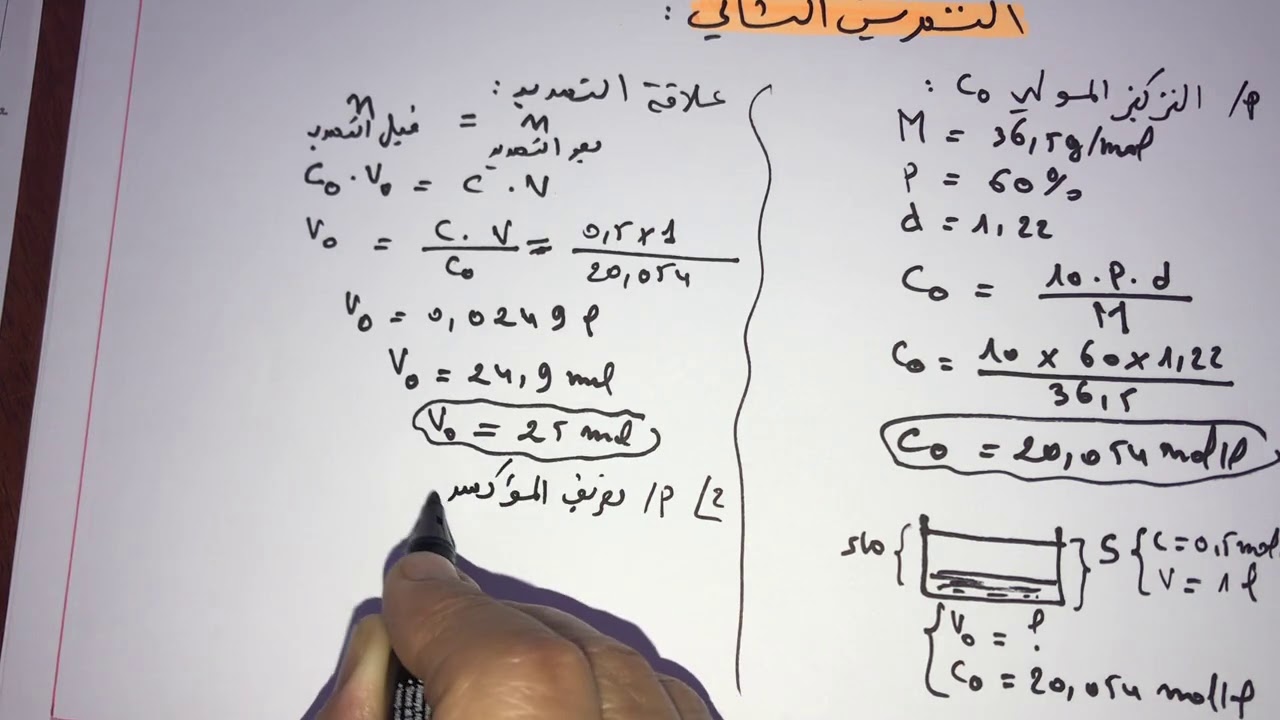 التمرين الثاني :
أ/ التركيز المولي C₀ :
M = 36,5g/mol
P = 60%
d = 1,22
C₀ = 10.P.d / M
C₀ = 10 x 60 x 1,22 / 36,5
C₀ = 20,054 mol/l
ماء { } S { C = 0,5 mol
V = 1 l
{ V₀ = ?
C₀ = 20,054 mol/l
علاقة التمديد :
n قبل التمديد = n بعد التمديد
C₀.V₀ = C.V
V₀ = C.V / C₀ = 0,5x1 / 20,054
V₀ = 0,0249 l
V₀ = 24,9 ml
V₀ = 25 ml
2] أ/ تعريف المؤكسد